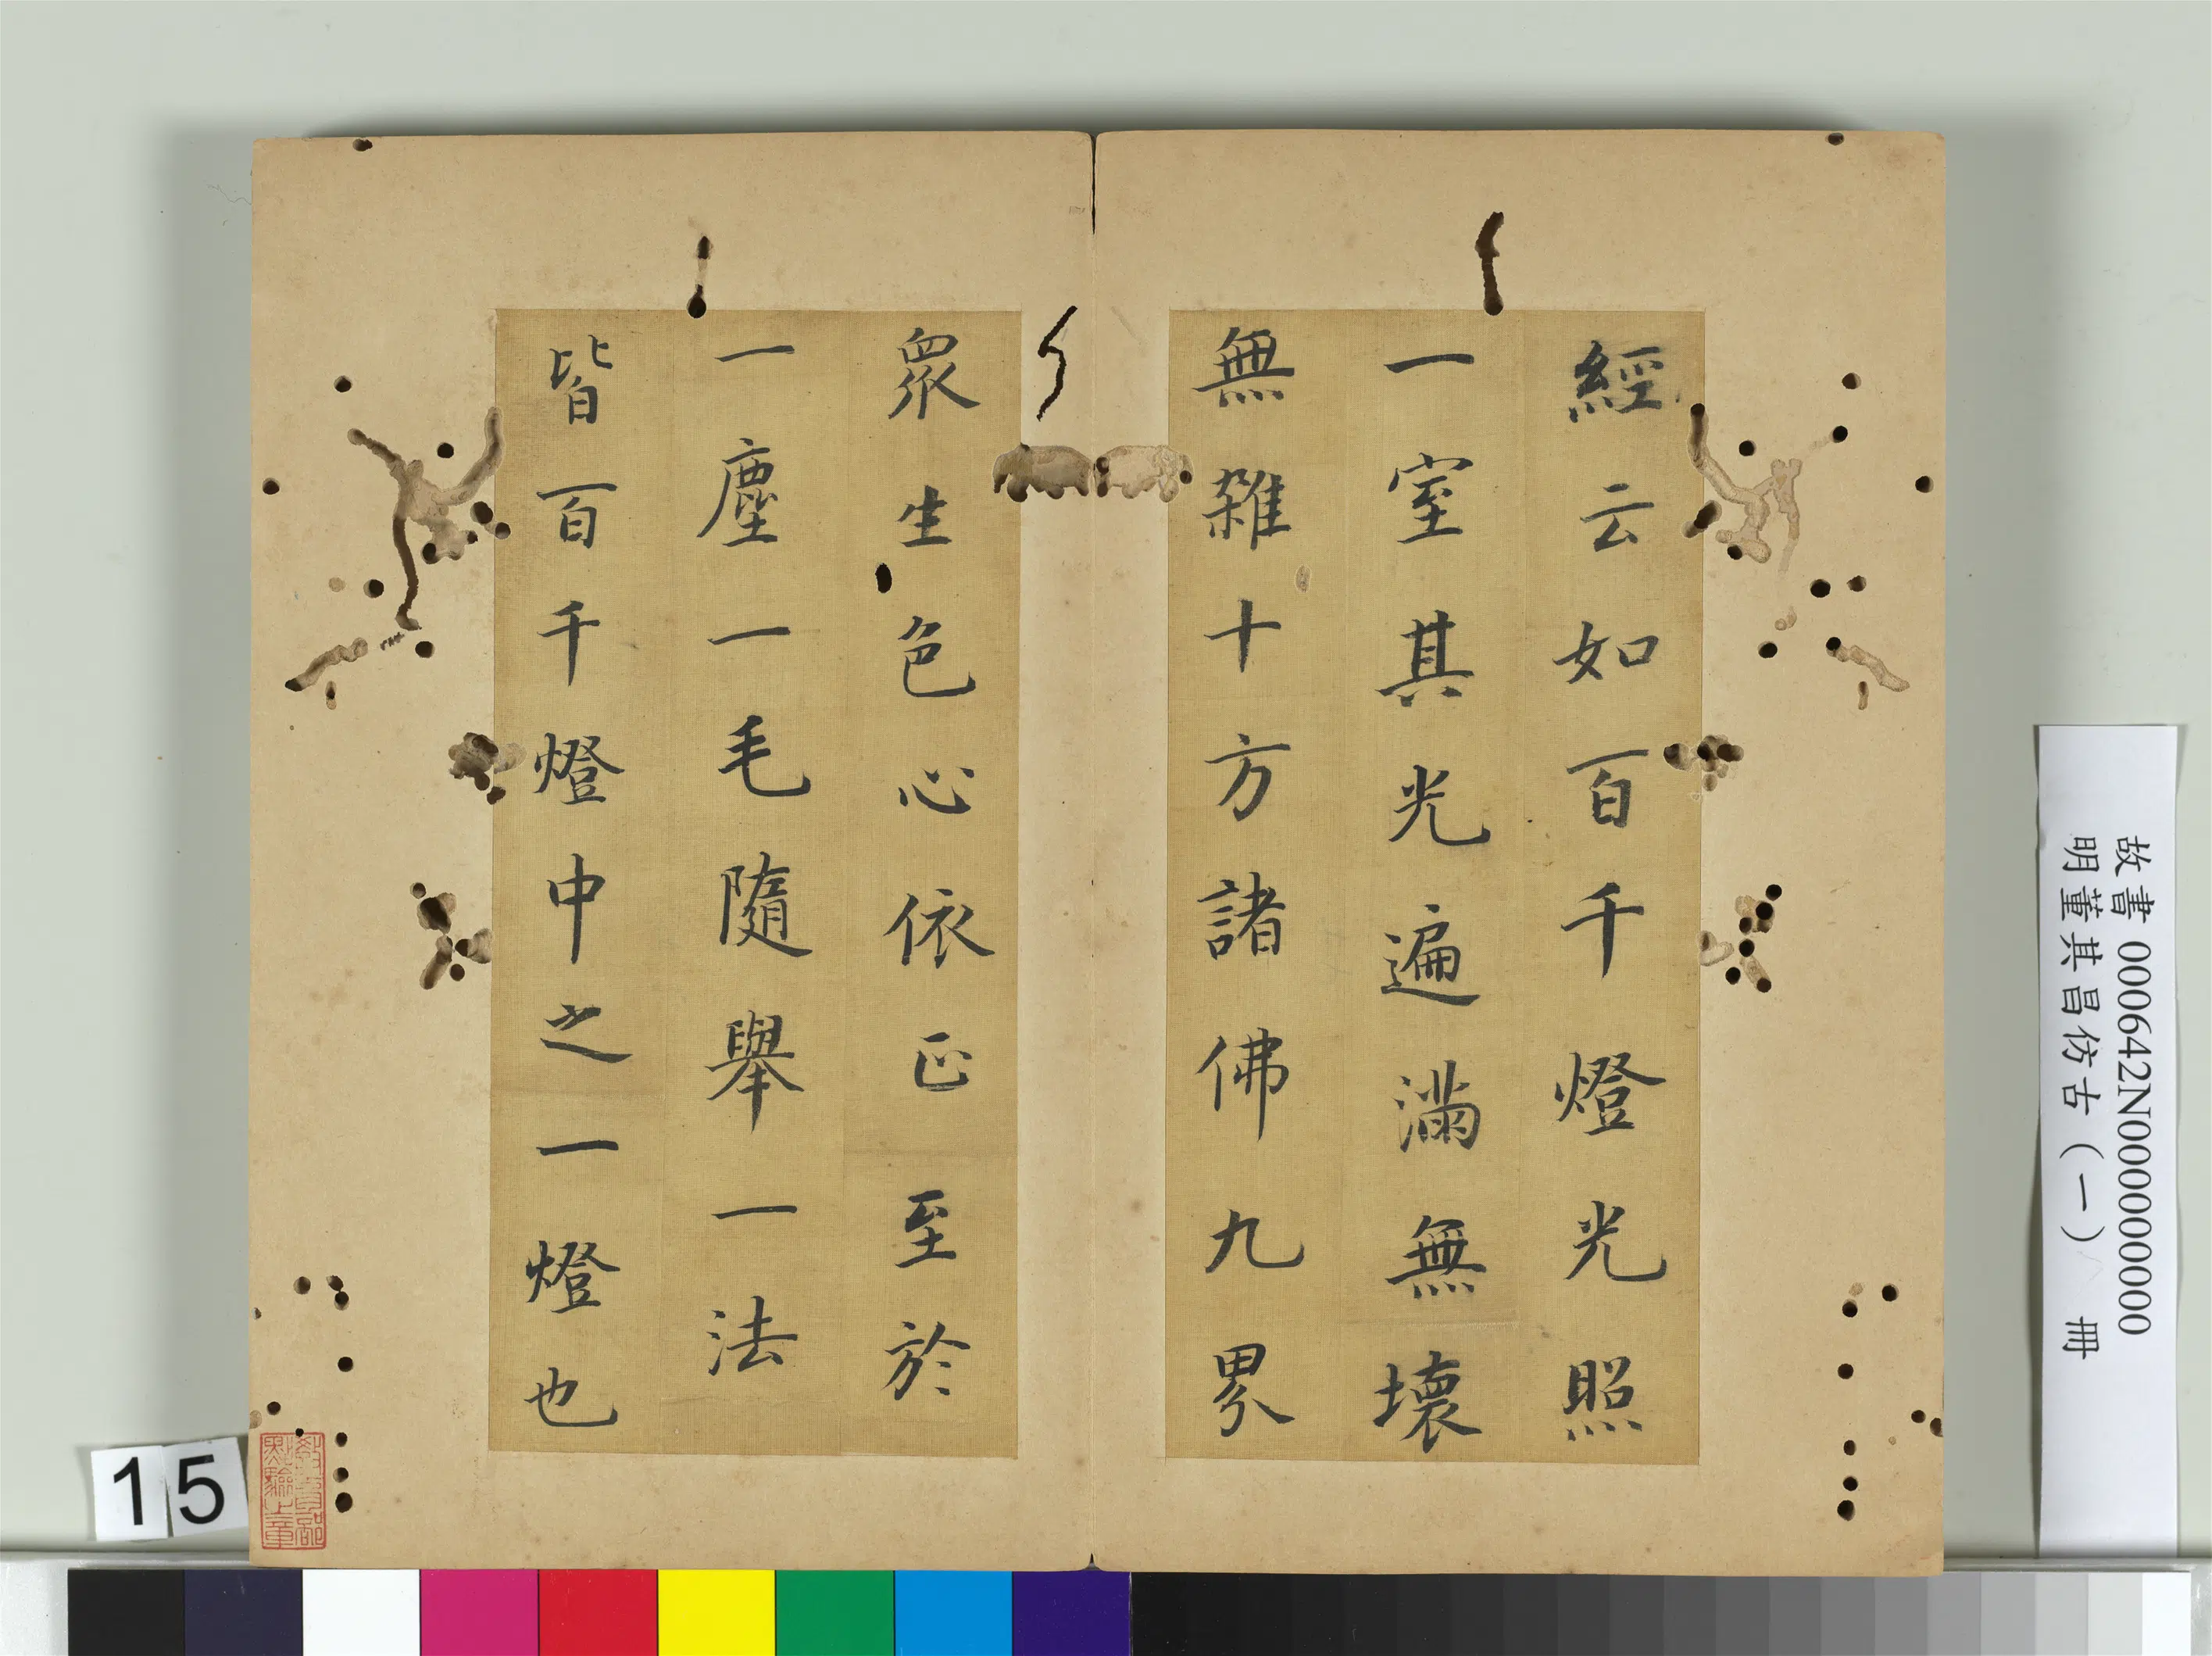 經云如百千燈光照
一室其光遍滿無壞
無雜十方諸佛九界
眾生色心依正至於
一塵一毛隨舉一法
皆百千燈中之一燈也
故書 000642N000000000
明董其昌仿古(一) 冊
15
教育部
點驗之章